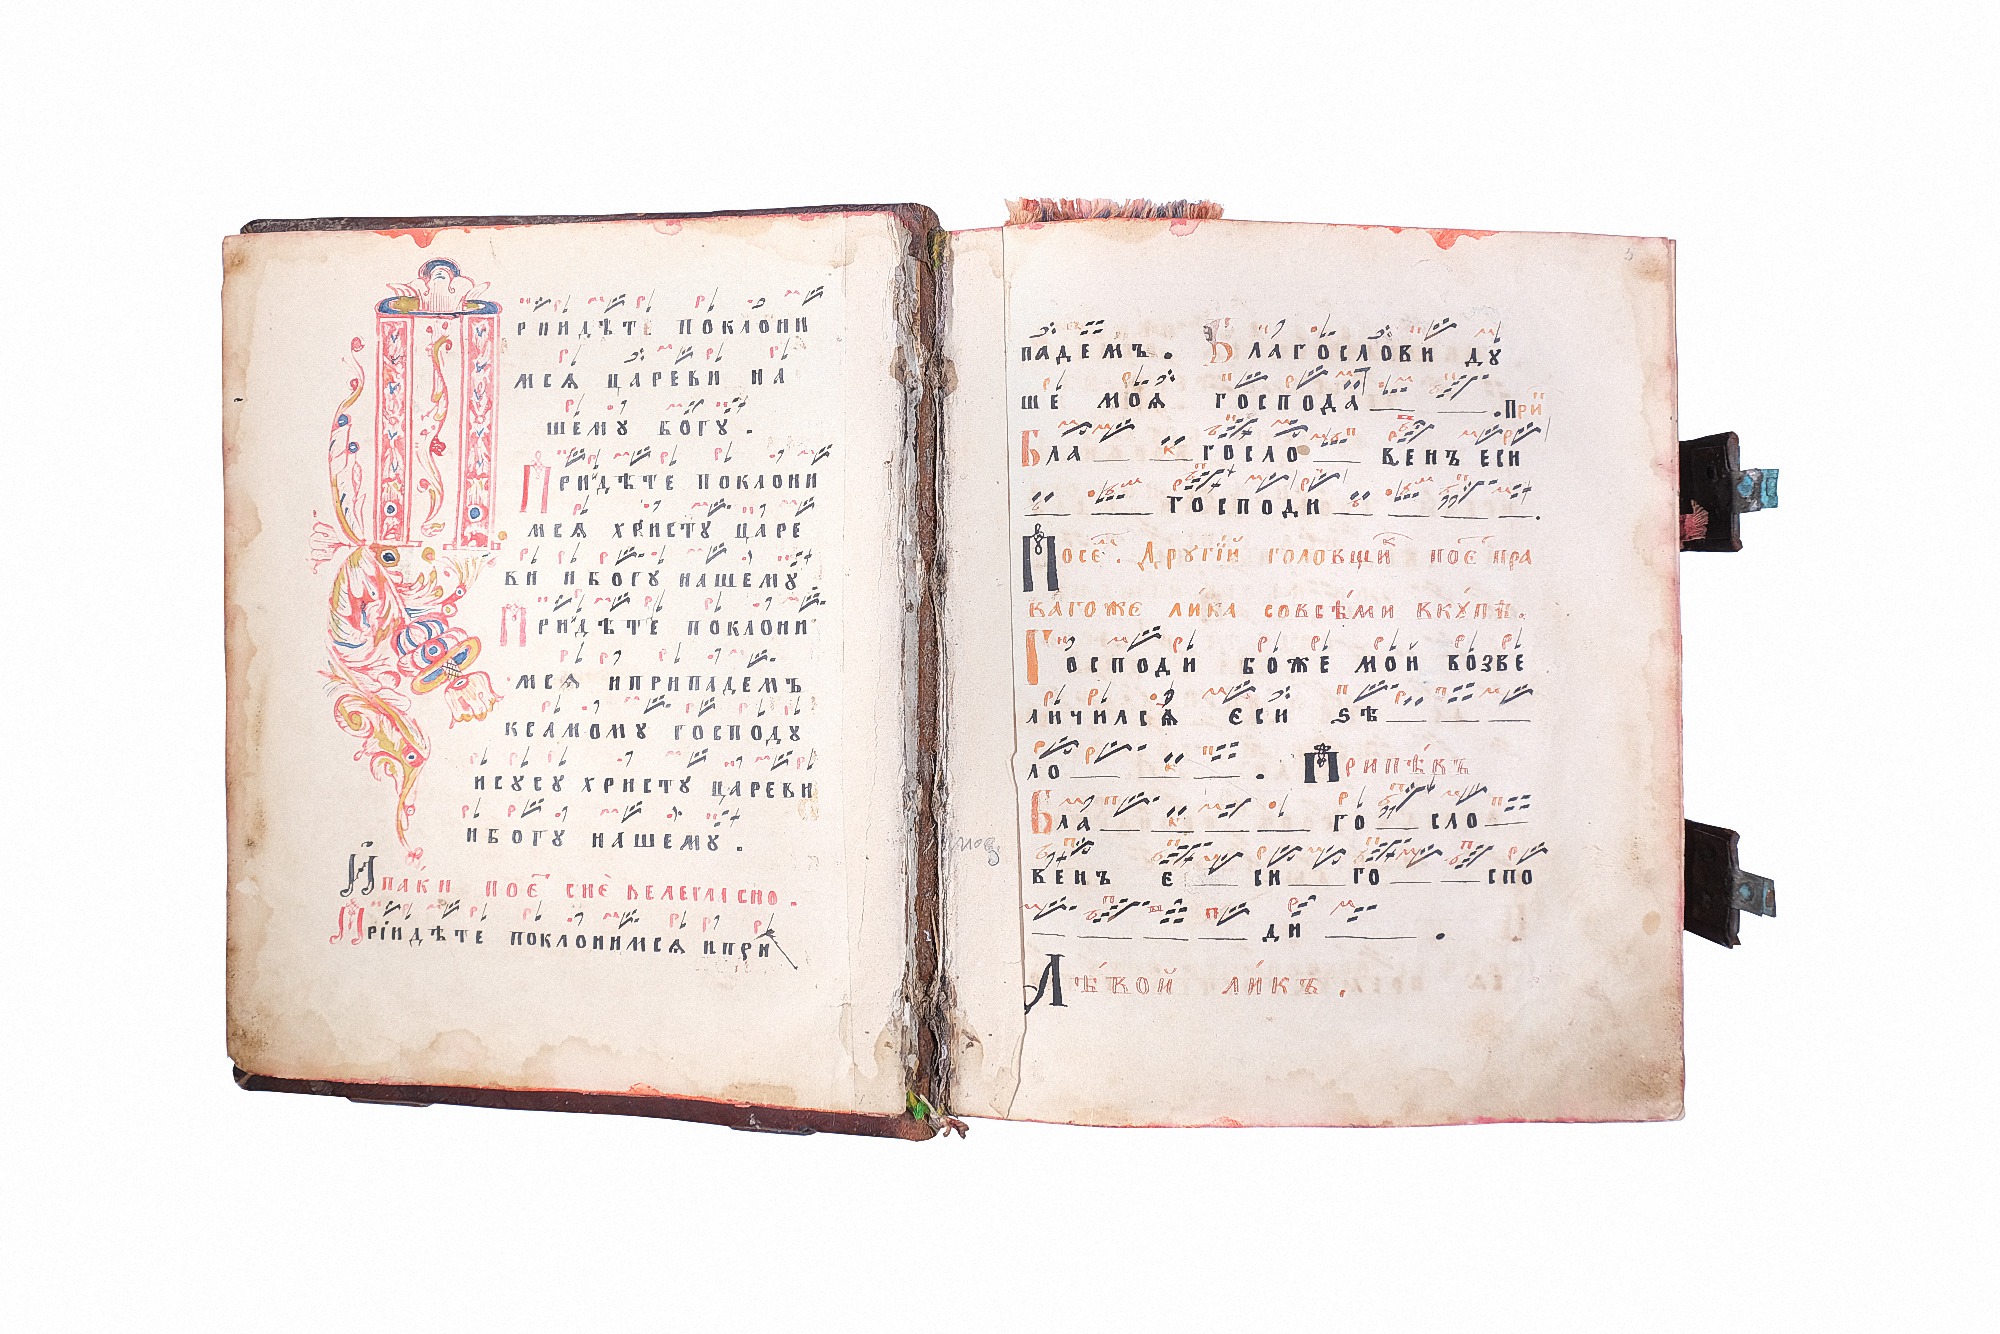 Придѣте поклони
мсѧ цареви на
шему богу .
Придѣте поклони
мсѧ христу царе
ви ибогу нашему
Придѣте поклони
мсѧ иприпадемъ
ксамому господу
исусу христу цареви
ибогу нашему .
И҆па́ки пое҆ сиѐ велегласно .
Прїидѣте поклонимсѧ ипри
падемъ . Бла́гослови ду
ше моѧ господа̀ __ __ . При
Бла __ __ госло __ венъ еси
__ __ господи __ __ __ .
Посе́м . Другі́й головщи́к пое́ пра
ва́гоже ли́ка совсѣ́ми вкꙋ́пѣ .
Господи боже мой возве
личилсѧ єси ѕѣ __ __ __
ло __ __ __ . Припѣ́въ
Бла __ __ __ __ го __ сло __
венъ є __ си __ го __ __ спо
__ __ __ __ __ ди __ .
Лѣ́вой ли́къ .